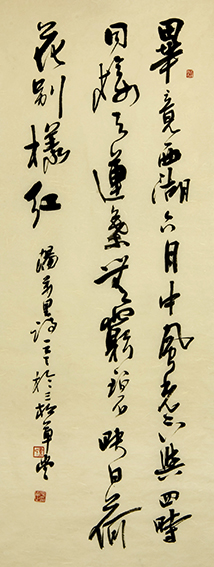 畢竟西湖六月中風光不與四時
同接天蓮葉無窮碧映日荷
花別樣紅
楊萬里詩於三松草堂